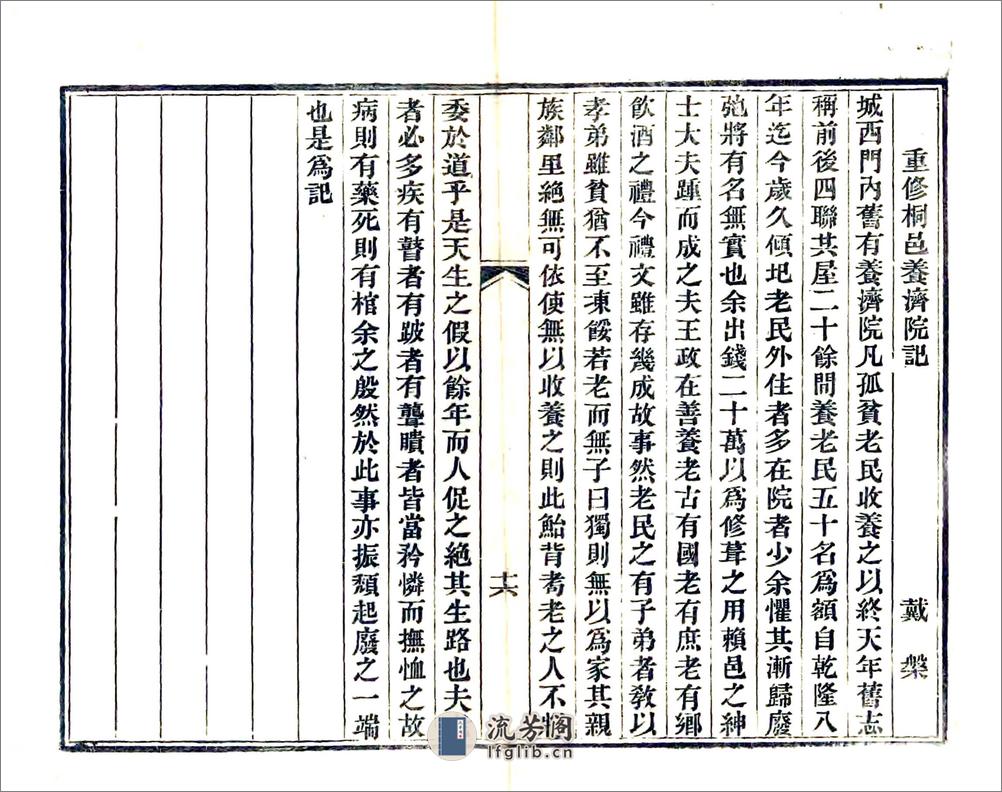 重修桐邑養濟院記　戴槃
城西門內舊有養濟院凡孤貧老民收養之以終天年舊志
稱前後四聯共屋二十餘間養老民五十名爲額自乾隆八
年迄今歲久傾圯老民外住者多在院者少余懼其漸歸廢
弛將有名無實也余出錢二十萬以爲修葺之用賴邑之紳
士大夫踵而成之夫王政在善養老古有國老有庶老有鄉
飮酒之禮今禮文雖存幾成故事然老民之有子弟者敎以
孝弟雖貧猶不至凍餒若老而無子曰獨則無以爲家其親
族鄰里絕無可依使無以收養之則此鮐背耇老之人不將
十六
委於道乎是天生之假以餘年而人促之絕其生路也夫老
者必多疾有瞽者有跛者有聾瞶者皆當矜憐而撫恤之故
病則有藥死則有棺余之殷然於此事亦振頹起廢之一端
也是爲記
流芳阁
lfglib.cn